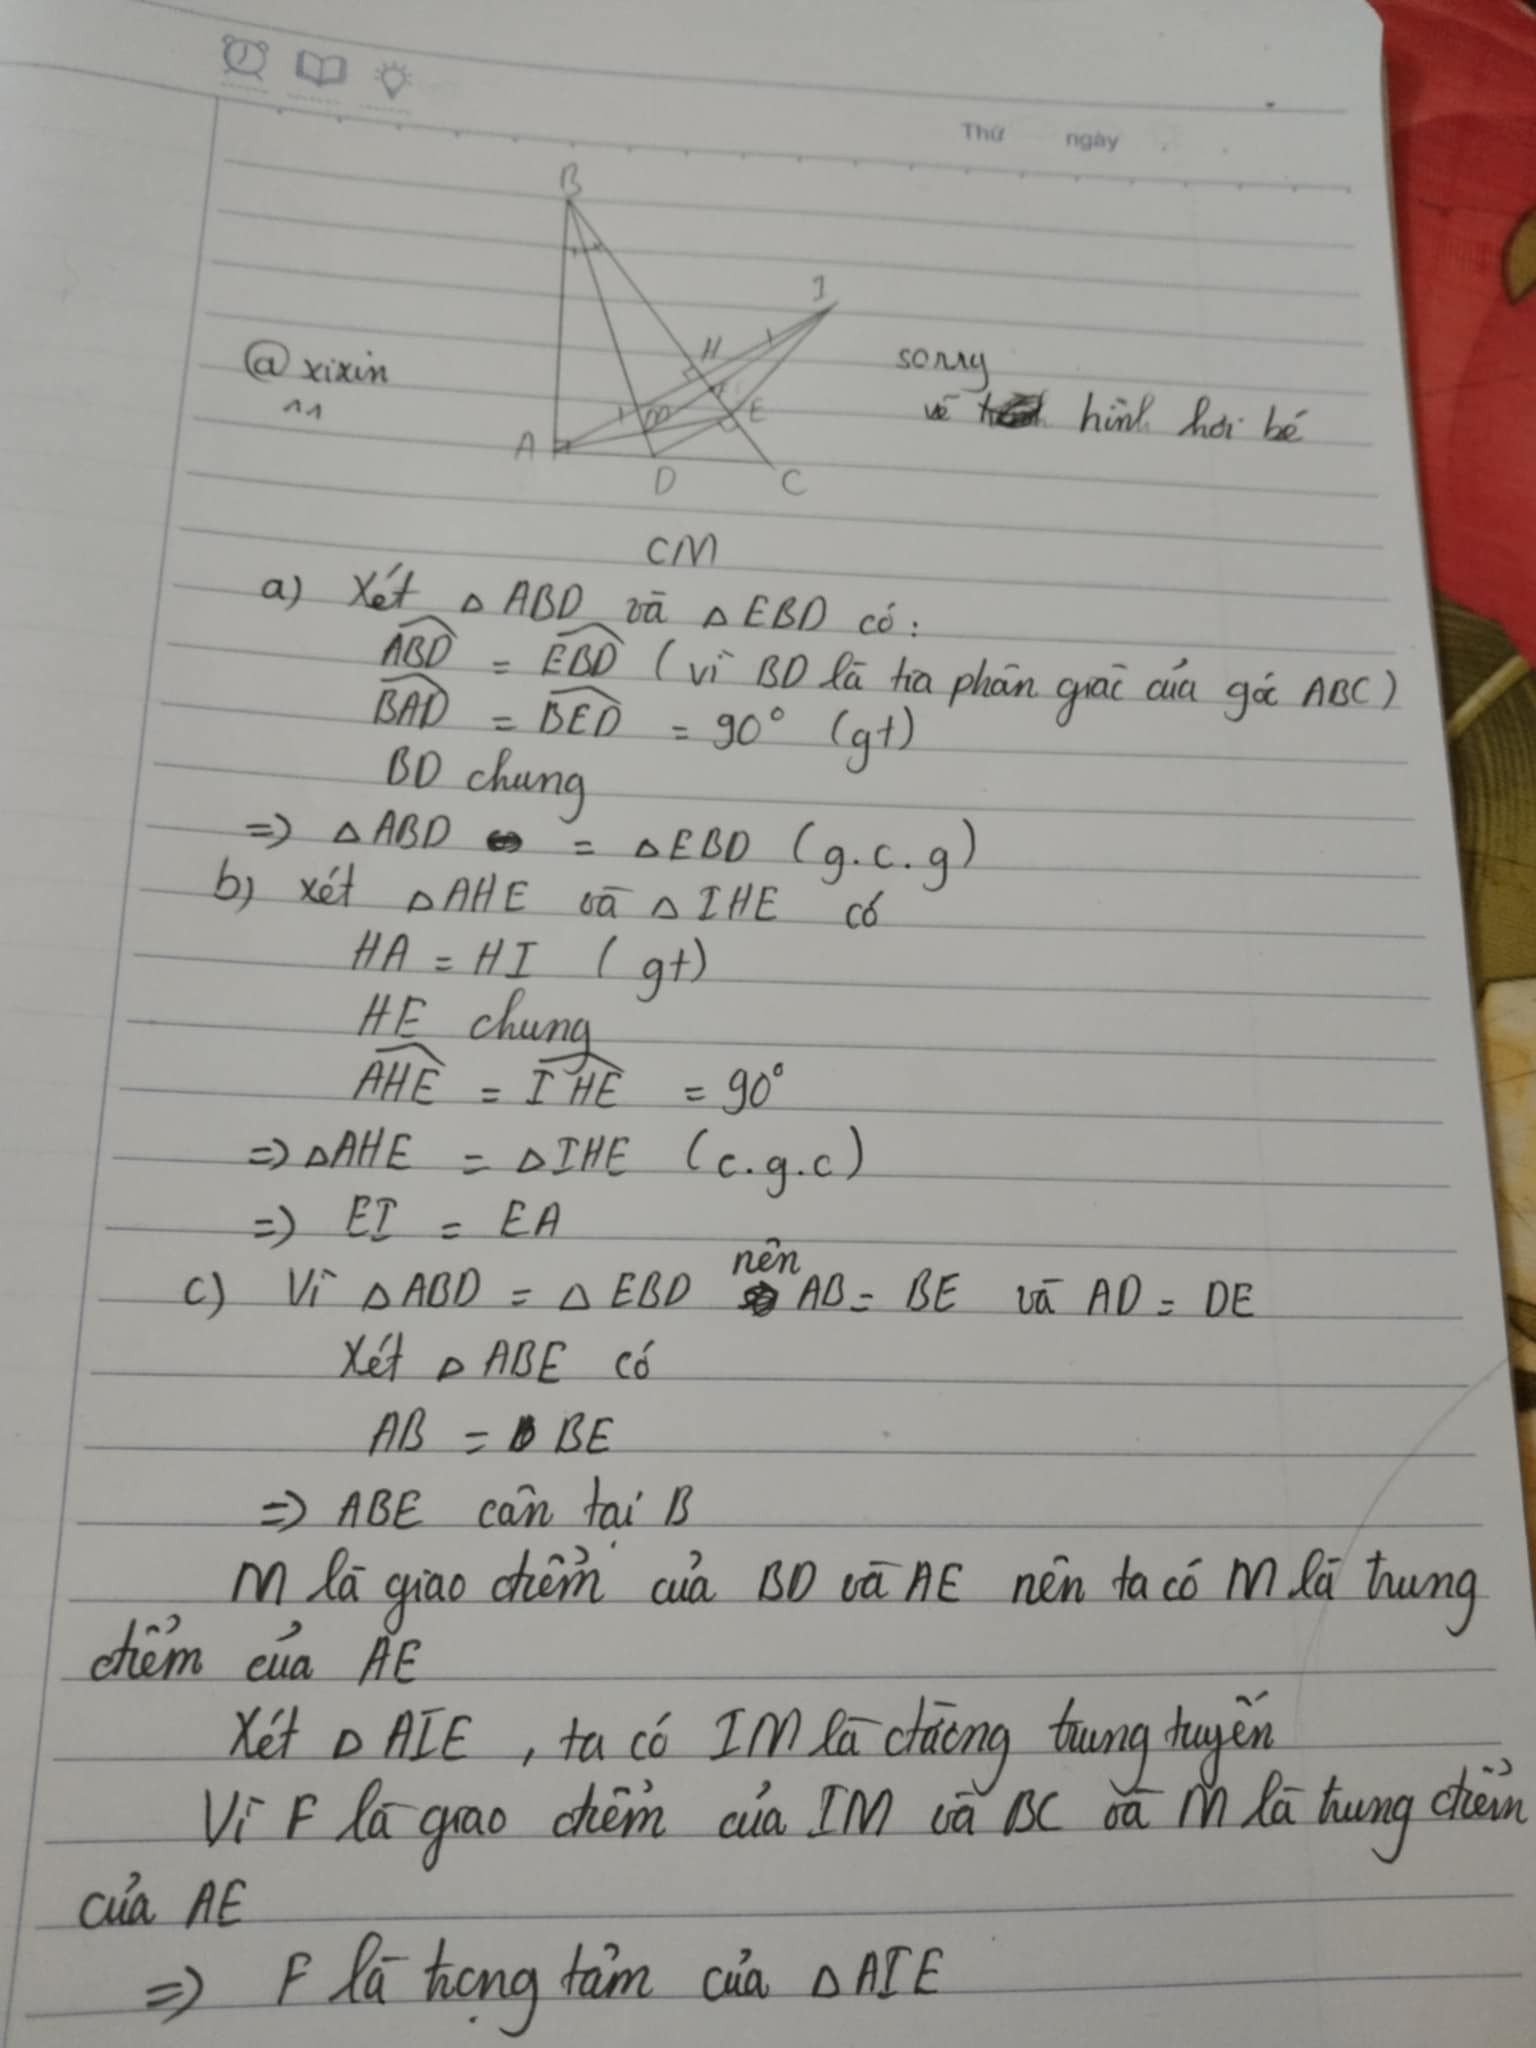 Thứ ngày
B
I
H
@ xixin
^^
sorry
vẽ hình hơi bé
M
E
A
D
C
CM
a) Xét △ ABD và △ EBD có:
ABD = EBD ( vì BD là tia phân giác của góc ABC)
BAD = BED = 90° (gt)
BD chung
=> △ ABD = △ EBD (g.c.g)
b) xét △ AHE và △ IHE có
HA = HI (gt)
HE chung
AHE = IHE = 90°
=> △ AHE = △ IHE (c.g.c)
=> EI = EA
c) Vì △ ABD = △ EBD nên AB = BE và AD = DE
Xét △ ABE có
AB = BE
=> ABE cân tại B
M là giao điểm của BD và AE nên ta có M là trung
điểm của AE
Xét △ AIE , ta có IM là đường trung tuyến
Vì F là giao điểm của IM và BC và M là trung điểm
của AE
=> F là trọng tâm của △ AIE